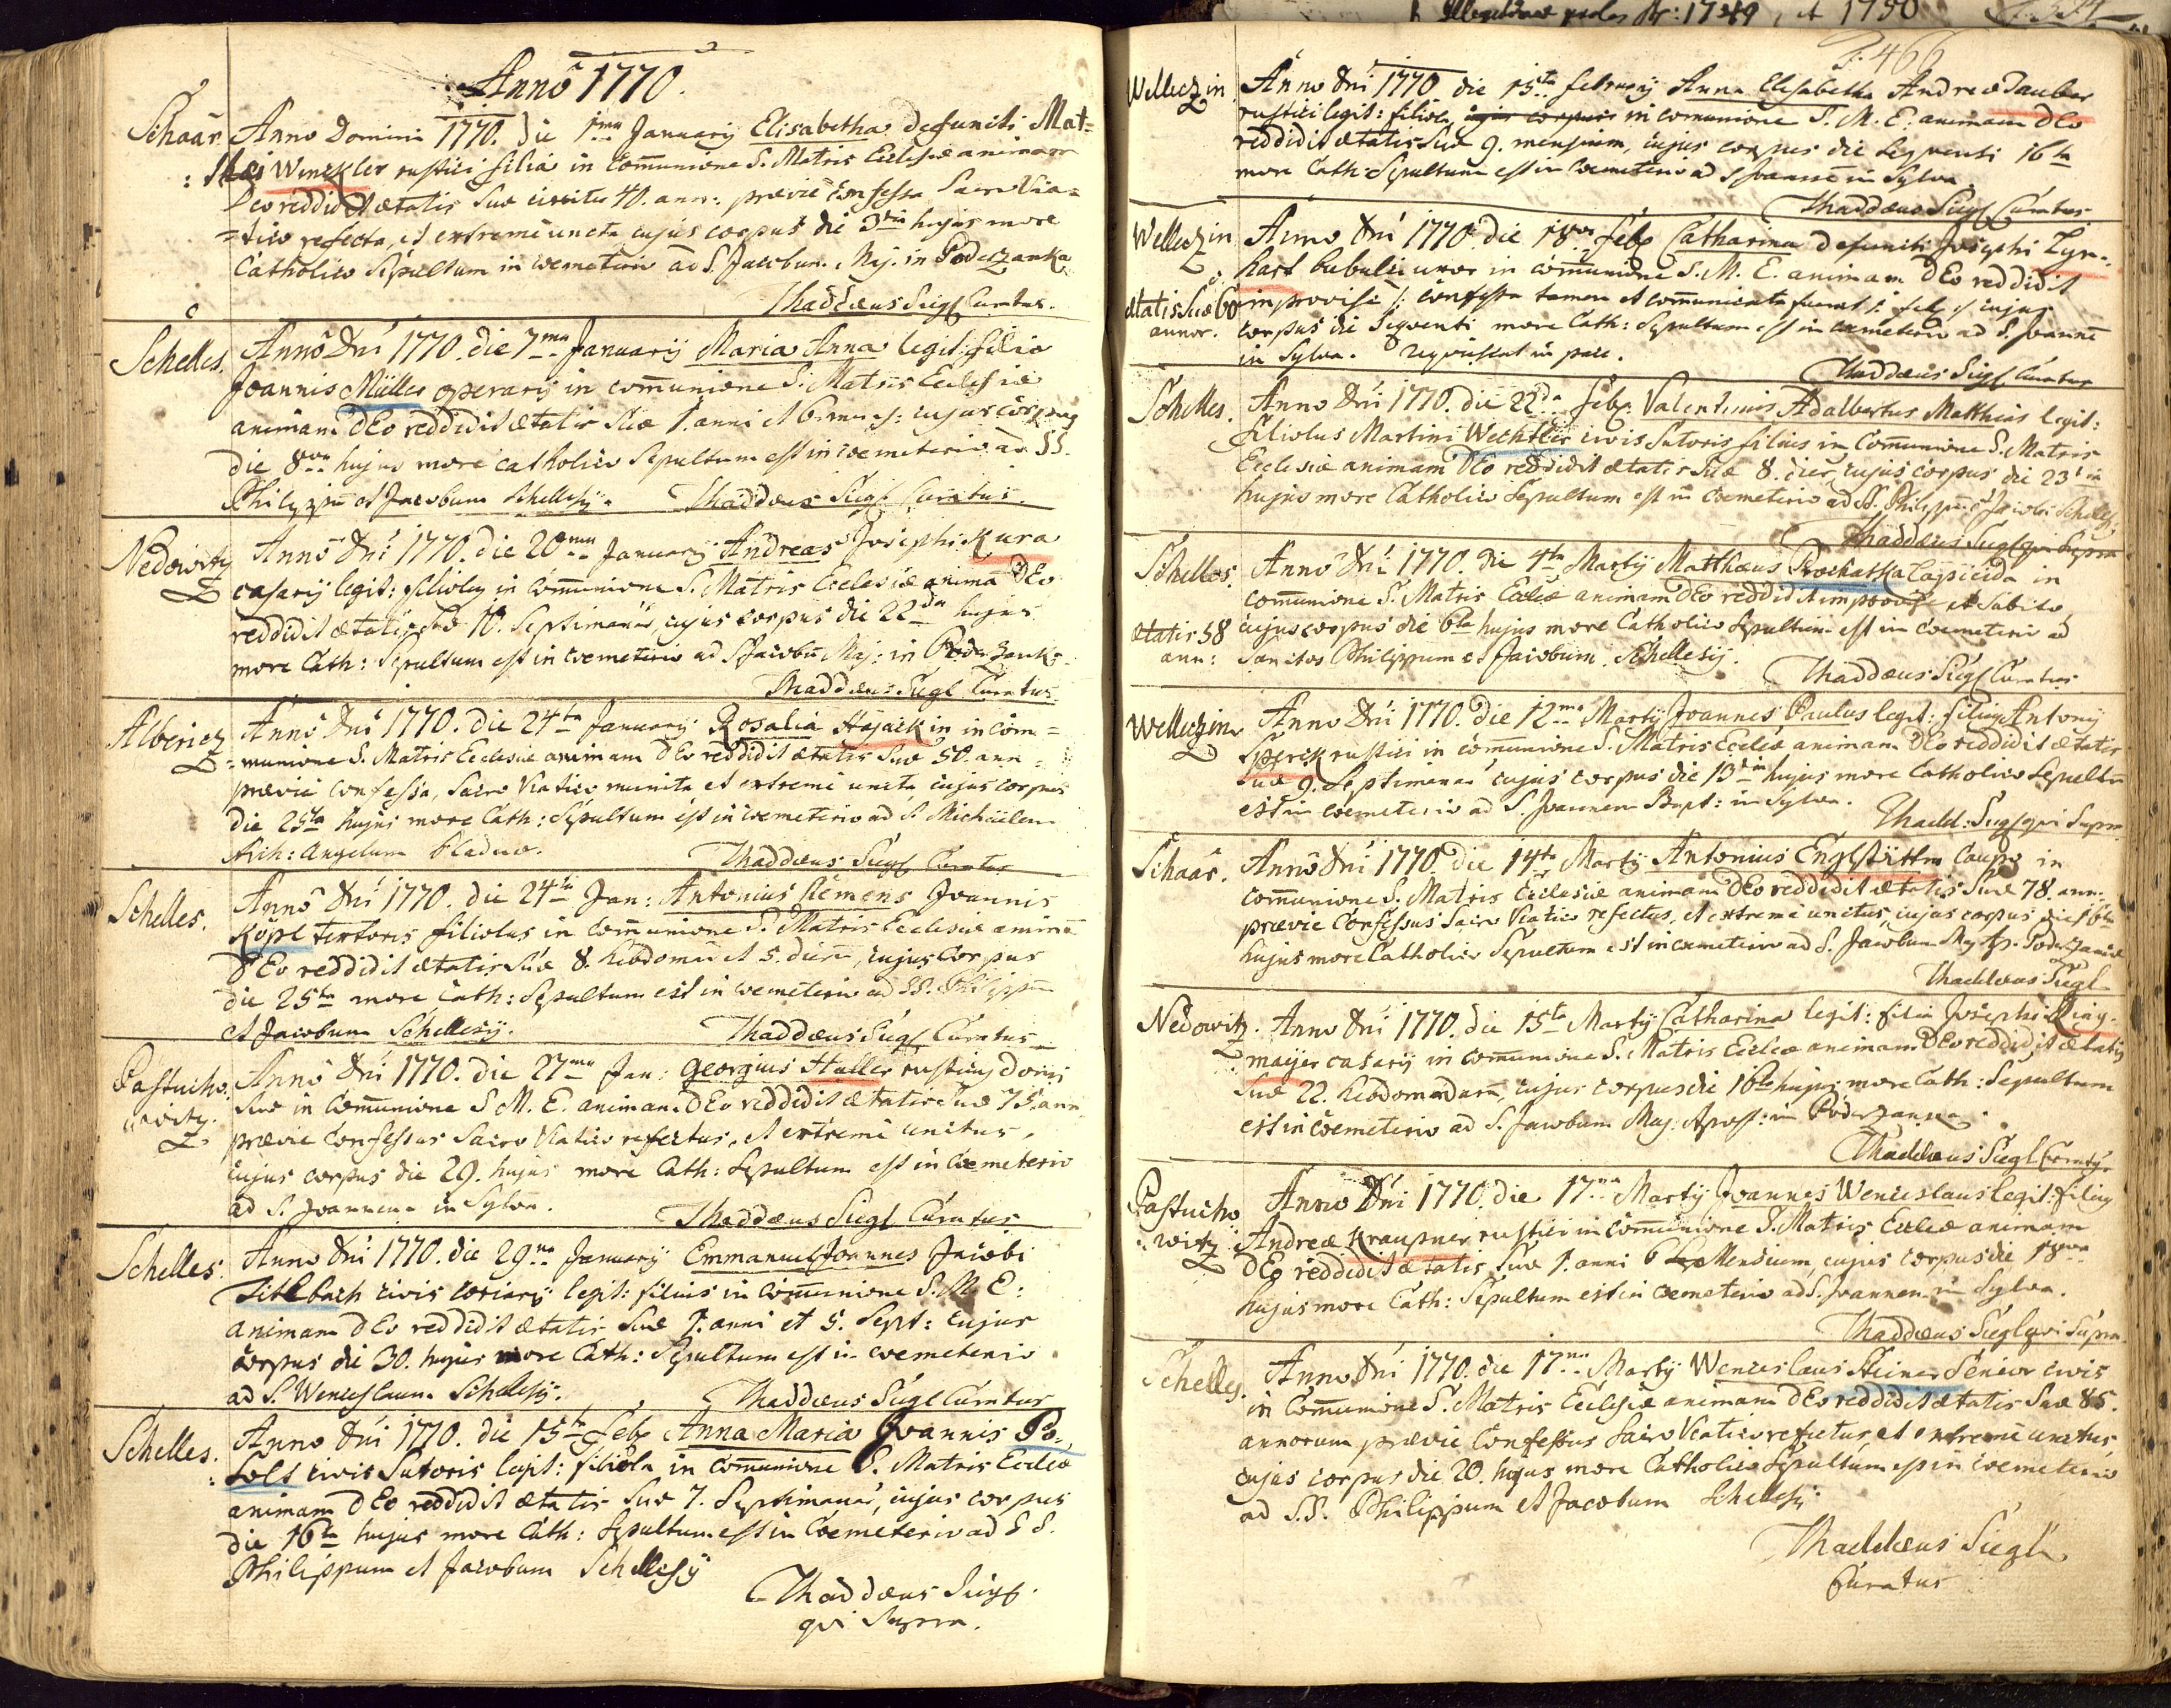 Anno 1770.
Schaar. Anno Domini 1770. Die 1ma January Elisabetha defuncti Mat=
Winckler rustici filia in Communione S. Matris Ecclesiae animam
Deo reddidit aetatis Suae circiter 40. ann: praevie Confessa Sacro Via=
=tico refecta, et extreme uncta cujus corpus die 3tia hujus more
Catholico Sepultum in coemeterio ad S. Jacobum Maj. in Poderzanka
Thaddaeus Siegl Curatus.
Schelles. Anno Dni 1770. die 7ma January Maria Anna legit: filia
Joannis Müller operarij in communione S. Matris Ecclesiae
animam DEo reddidit aetatis Suae 1. anni et 6. mens: cujus corpus
die 8va hujus more catholico Sepultum est in coemeterio ad SS.
Philippum et Jacobum Schellesij. Thaddaeus Siegl Curatus.
Nedowitz Anno Dni 1770. die 20ma January Andreas Josephi Kura
casarij legit: filiolus in Communione S. Matris Ecclesiae anima DEo
reddidit aetatis Suae 10. Septimanar, cujus corpus die 22da hujus
more Cath: Sepultum est in coemeterio ad S Jacobu Maj: in Poderzank:
Thaddaeus Siegl Curatus.
Albericz Anno Dni 1770. die 24ta January Rosalia Hajackin in com=
=munione S. Matris Ecclesiae animam DEo reddidit aetatis Suae 50. ann=
praevie confessa, Sacro Viatico munita et extreme uncta, cujus corpus
die 25ta hujus more Cath: Sepultum est in coemeterio ad S. Michaelem
Arch: Angelum Pladnae. Thaddaeus Siegl Curatus
Schelles. Anno Dni 1770. die 24ta Jan: Antonius Clemens Joannis
Köpl textoris filiolus in Communione S. Matris Ecclesiae anima
DEo reddidit aetatis Suae 8. hebdoma et 5. dieru, cujus Corpus
die 25ta more Cath: Sepultum est in coemeterio ad SS. Philippu
et Jacobum Schellesij. Thaddaeus Siegl Curatus
Pastucho: Anno Dni 1770. die 27ma Jan: Georgius Haller rusticus domi
witz. Suae in Communione S M. E. animam DEo reddidit aetatis Suae 75. ann
praevie Confessus Sacro Viatico refectus, et extreme unctus,
cujus corpus die 29. hujus more Cath: Sepultum est in Coemeterio
ad S. Joannem in Sylva. Thaddaeus Siegl Curatus
Schelles. Anno Dni 1770. die 29na January Emmanuel Joannes Jacobi
Titlbach civis coriarij legit: filius in Communione S. M. E:
animam DEo reddidit aetatis Suae 1. anni et 5. Sept: cujus
corpus die 30. hujus more Cath: Sepultum est in coemeterio
ad S. Wenceslaum Schellesij. Thaddaeus Siegl Curatus
Schelles. Anno Dni 1770. die 15ta Feb: Anna Maria Joannis Po=
:Solt civis Sutoris legit: filiola in Communione S. Matris Eccleae
animam DEo reddidit aetatis Suae 7. Septimanar, cujus corpus
die 16ta hujus more Cath: Sepultum est in Coemeterio ad SS.
Philippum et Jacobum Schellesij
Thaddaeus Siegl
qui Supra.
1749, et 1750
P: 466
Welleczin Anno Dni 1770 die 15ta february Anna Elisabetha Andreae Tauber
rustici legit: filiola, cujus corpus in comunione S. M. E. animam DEo
reddidit aetatis Suae 9. mensium, cujus corpus die Sequenti 16ta
more Cath: Sepultum est in Coemeterio ad S Joann in Sylva
Thaddaeus Siegl Curatus
Welleczin Anno Dni 1770. die 18va Feb: Catharina defuncti Josephi Lyn=
hart bubulci uxor in communione S. M. E. animam DEo reddidit
aetatis Suae 60 annor. improvise /: confessa tamen et communicata fuerat :/ cujus
corpus die Sequenti more Cath: Sepultum est in coemeterio ad S. Joanne
in Sylva. requiescat in pace.
Thaddaeus Siegl Curatus
Schelles. Anno Dni 1770. die 22da Feb: Valentinus Adalbertus Matthias legit:
filiolus Martini Wechtler civis Sutoris filius in Communione S. Matris
Ecclesiae animam DEo reddidit aetatis Suae 8. dier, cujus corpus die 23tia
hujus more Catholico Sepultum est in coemeterio ad SS. Philippu et Jacobu Schelles:
Thaddaeus Siegl qui Supra
Schelles. Anno Dni 1770. die 4ta Marty Matthaeus Prochaska Lapicida in
communione S. Matris Eccliae animam DEo reddidit improvise et Subito,
aetatis 58 ann: cujus corpus die 6ta hujus more Catholico Sepultum est in Coemeterio ad
Sanctos Philippum et Jacobum Schellesij.
Thaddaeus Siegl Curatus
Welleczin Anno Dni 1770. die 12ma Marty Joannes Paulus legit: filius Antony
Sperck rustici in communione S. Matris Eccleae animam DEo reddidit aetatis
Suae 9. Septimanar cujus corpus die 13tia hujus more Catholico Sepultu
est in coemeterio ad S. Joannem Bapt: in Sylva.
Thadd: Siegl qui Supra
Schaar. Anno Dni 1770. die 14ta Marty Antonius Englstättn Caupo in
communione S. Matris Ecclesiae animam DEo reddidit aetatis Suae 78. ann:
praevie Confessus Sacro Viatico refectus, et extreme unctus, cujus corpus die 16ta
hujus more Catholico Sepultum est in coemeterio ad S. Jacobum Maj Ap. Poderzankae
Thaddaeus Siegl
Nedowitz. Anno Dni 1770. die 15ta Marty Catharina legit: filia Josephi Ring=
:maijer casarij in communione S. Matris Eccleae animam DEo reddidit aetatis
Suae 22. hebdomadaru, cujus corpus die 16ta hujus more Cath: Sepultum
est in Coemeterio ad S. Jacobum Maj. Apost: in Poderzanka.
Thaddaeus Siegl Curatus
Pastucho Anno Dni 1770. die 17ma Marty Joannes Wenceslaus legit: filius
:witz Andreae Kraupner rustici in Communione S. Matris Eccleae animam
DEo reddidit aetatis Suae 1. anni 6 Mensium, cujus corpus die 18va
hujus more Cath: Sepultum est in Coemeterio ad S. Joannem in Sylva.
Thaddaeus Siegl qui Supra
Schelles. Anno Dni 1770. die 17ma Marty Wenceslaus Steiner Senior civis
in Communione S. Matris Ecclesiae animam DEo reddidit aetatis Suae 85.
annorum praevie Confessus Sacro Viatico refectus, et extreme unctus
cujus corpus die 20. hujus more Catholico Sepultum est in coemeterio
ad S.S. Philippum et Jacobum Schellesij
Thaddaeus Siegl
Curatus